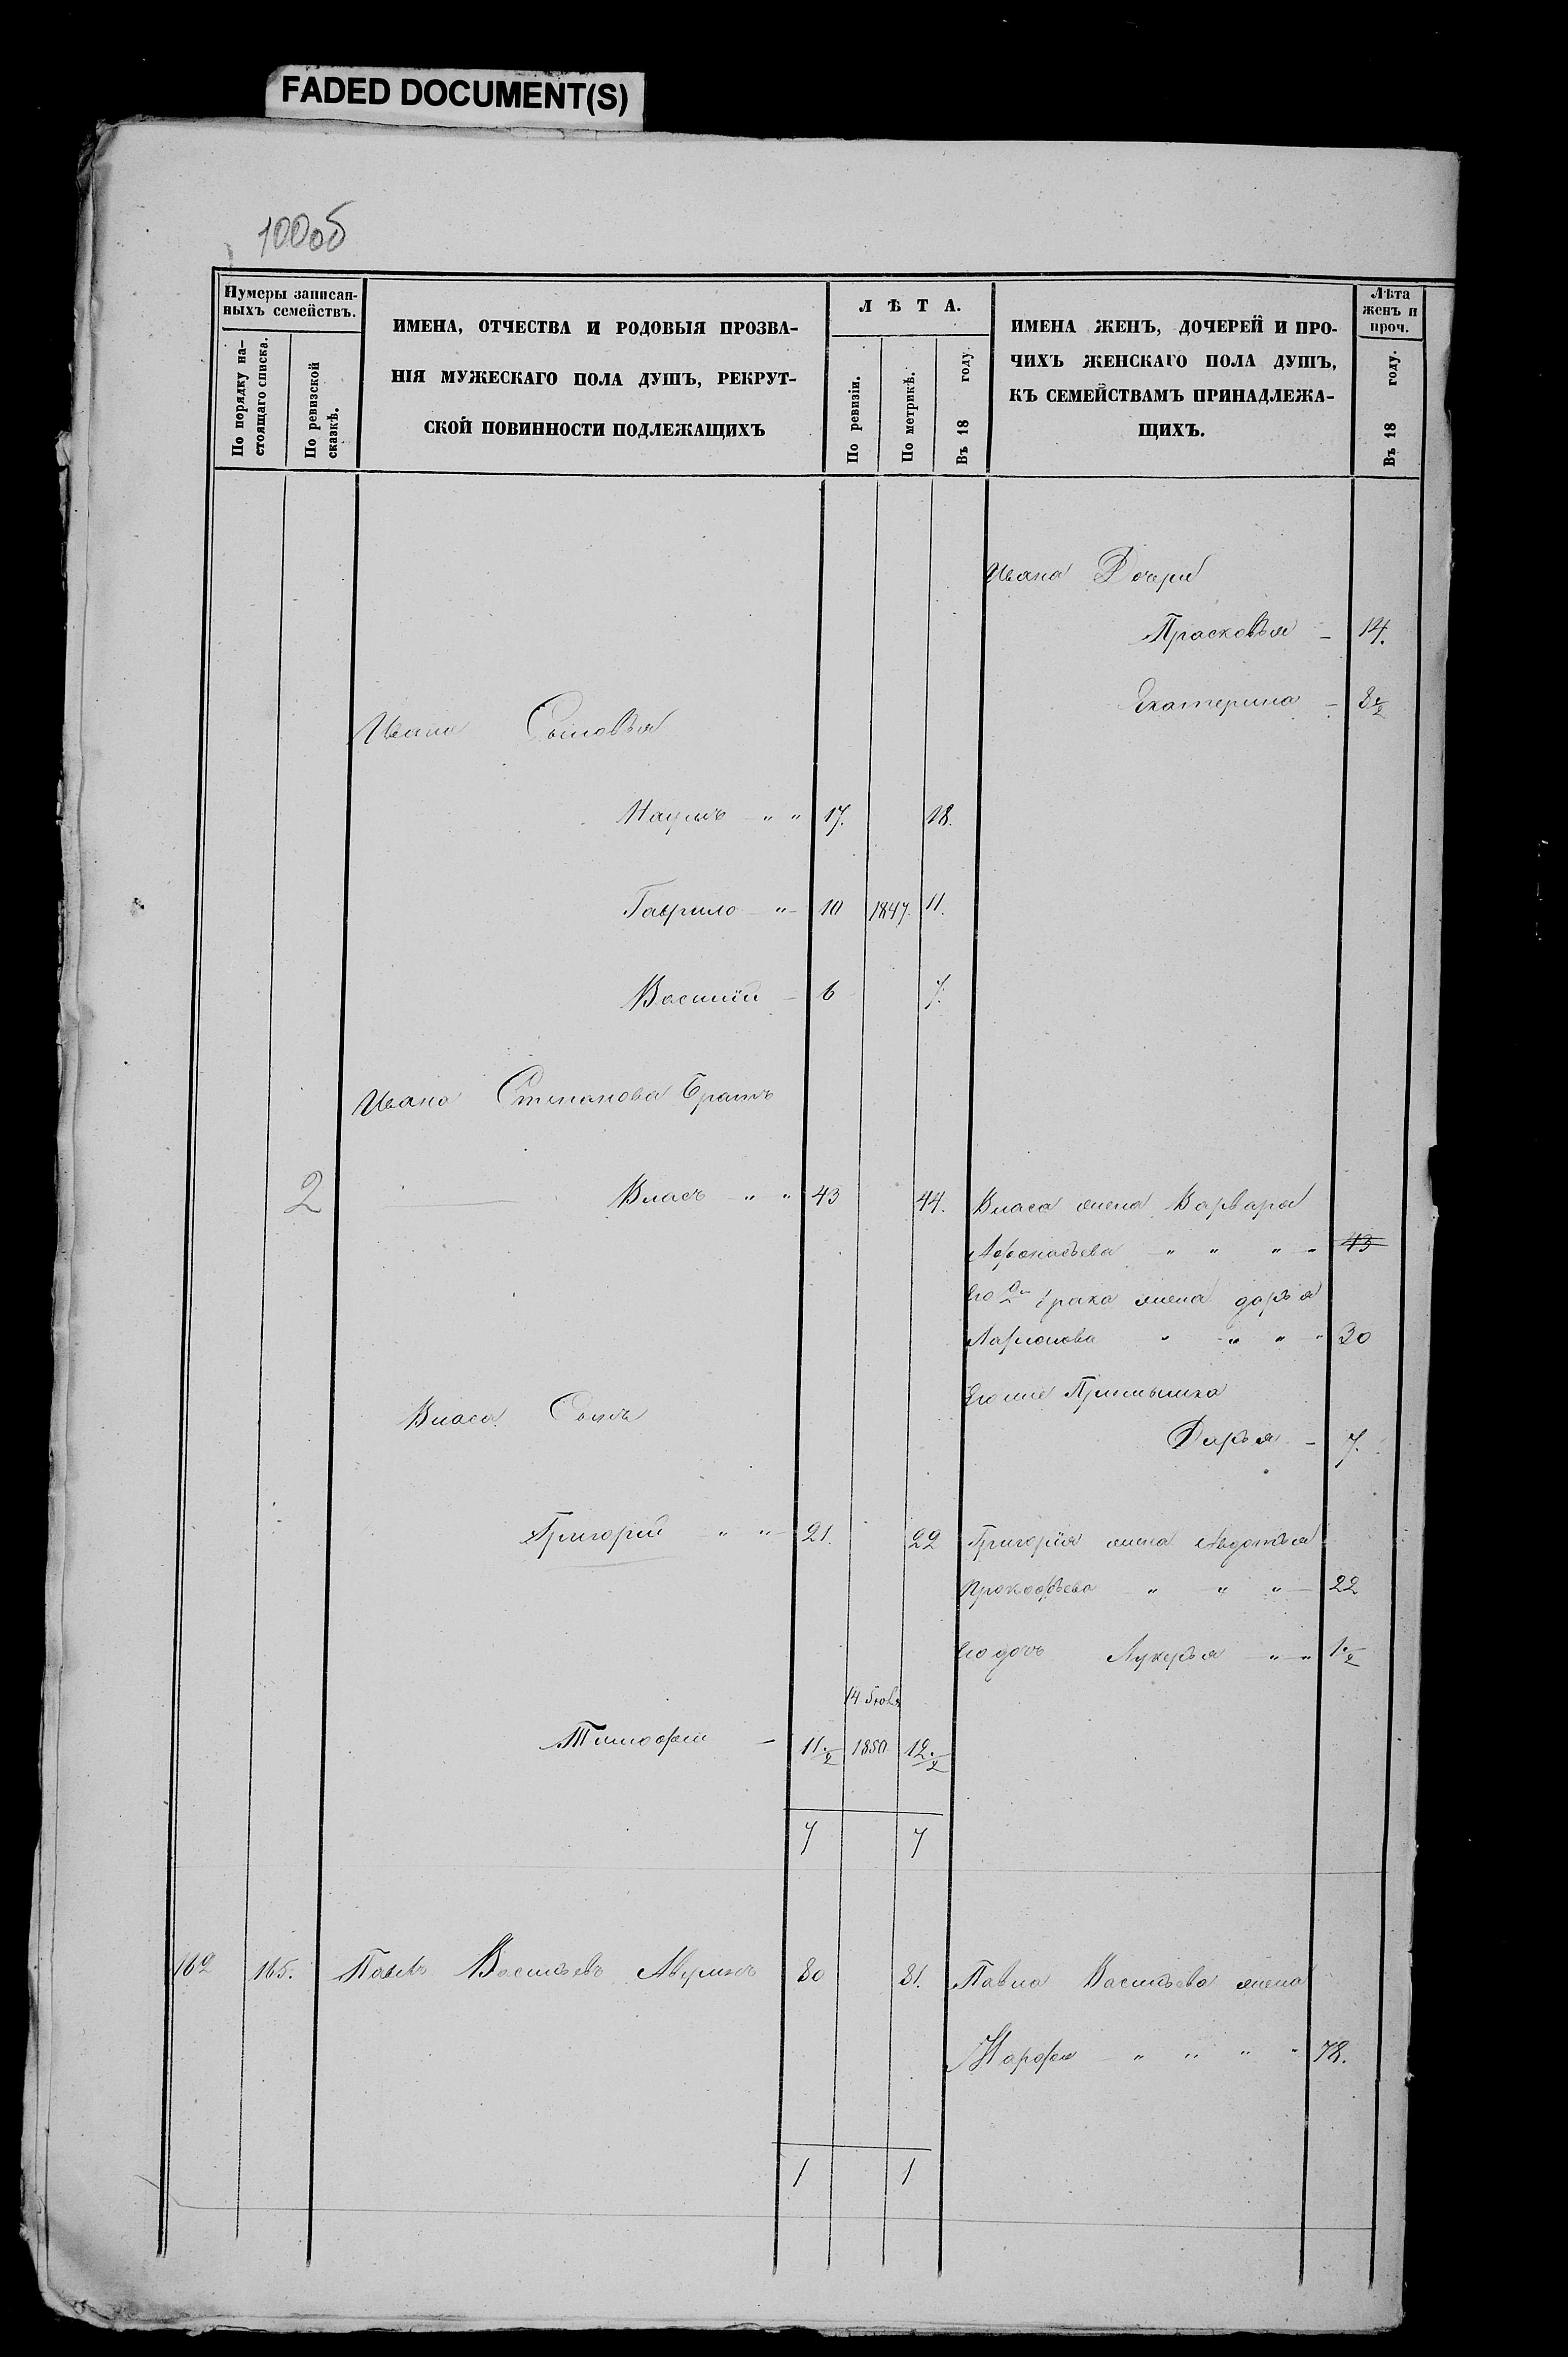 FADED DOCUMENT(S)
100об
Нумеры записан-
ныхъ семействъ.
По порядку на-
стоящаго списка.
По ревизской
сказкѣ.
ИМЕНА, ОТЧЕСТВА И РОДОВЫЯ ПРОЗВА-
НІЯ МУЖЕСКАГО ПОЛА ДУШЪ, РЕКРУТ-
СКОЙ ПОВИННОСТИ ПОДЛЕЖАЩИХЪ
ЛѢТА.
По ревизіи.
По метрикѣ.
Въ 18 году.
ИМЕНА ЖЕНЪ, ДОЧЕРЕЙ И ПРО-
ЧИХЪ ЖЕНСКАГО ПОЛА ДУШЪ,
КЪ СЕМЕЙСТВАМЪ ПРИНАДЛЕЖА-
ЩИХЪ.
Лѣта
женъ и
проч.
Въ 18 году.
Ивана Дочери
Прасковья - 14.
Екатерина -
Ивана Сыновья
Наумъ " " 17. 18.
Гаврило " 10 1847. 11.
Василій - 6 7.
Ивана Степанова Братъ
2 Власъ " " 43 44. Власа жена Варвара
Афонасьева " " " " 43
Его 2го брака жена дарья
Ларионова " " " " 30
Его же Приемышка
Власа Сынъ
Дарья - 7.
Григорій " " 21. 22 Григорія жена Авдотья
Прокофьева " " " 22
Его дочь Лукерья " " 1 1/2
14
Тимофей - 11 1/2 1850 12 1/2
7 7
162 165. Павелъ Васильевъ 80 81. Павла Васильева жена
Марфа " " " " 78.
1 1